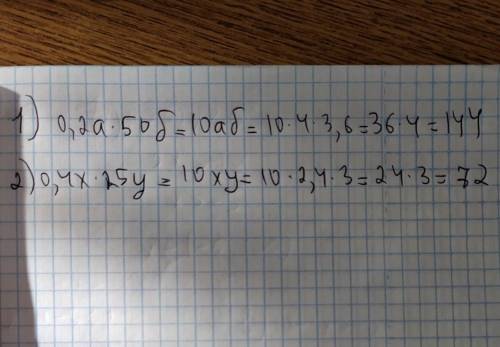 1) 0,2а·50б=10аб=10·4·3,6=36·4=144
2) 0,4х·25у=10ху=10·2,4·3=24·3=72